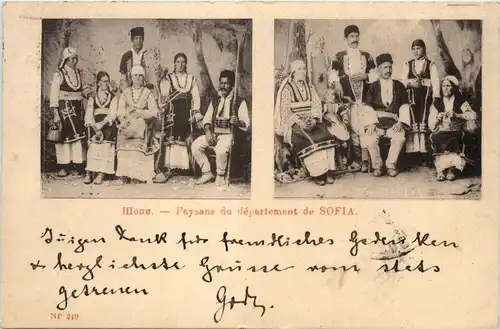 Шопи. — Paysans du département de SOFIA.
Innigen Dank für freundliches Gedenken
& herzlichste Grüsse vom stets
getreuen
NP 219